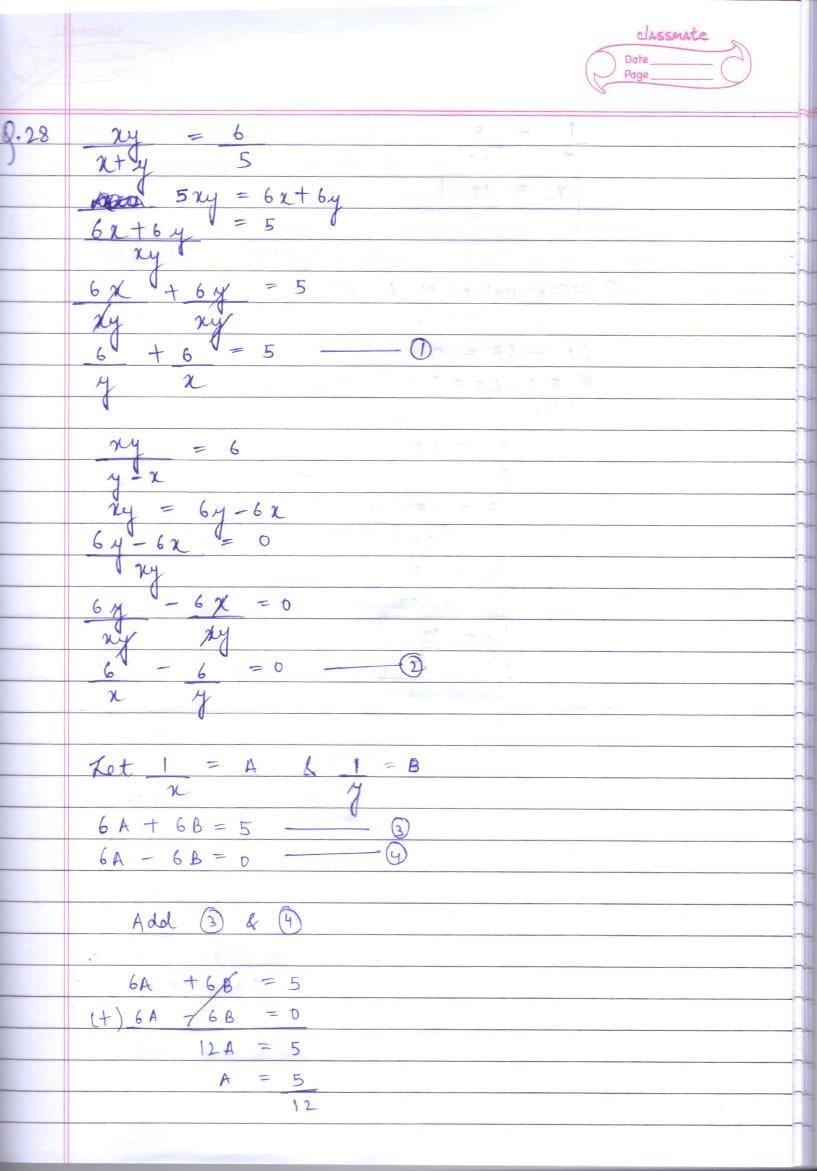 classmate
Date
Page
Q.28 xy/x+y = 6/5
5xy = 6x+6y
6x+6y/xy = 5
6x/xy + 6y/xy = 5
6/y + 6/x = 5 —— ①
xy/y-x = 6
xy = 6y-6x
6y-6x/xy = 0
6y/xy - 6x/xy = 0
6/x - 6/y = 0 —— ②
Let 1/x = A & 1/y = B
6A + 6B = 5 —— ③
6A - 6B = 0 —— ④
Add ③ & ④
6A + 6B = 5
(+) 6A - 6B = 0
12A = 5
A = 5/12